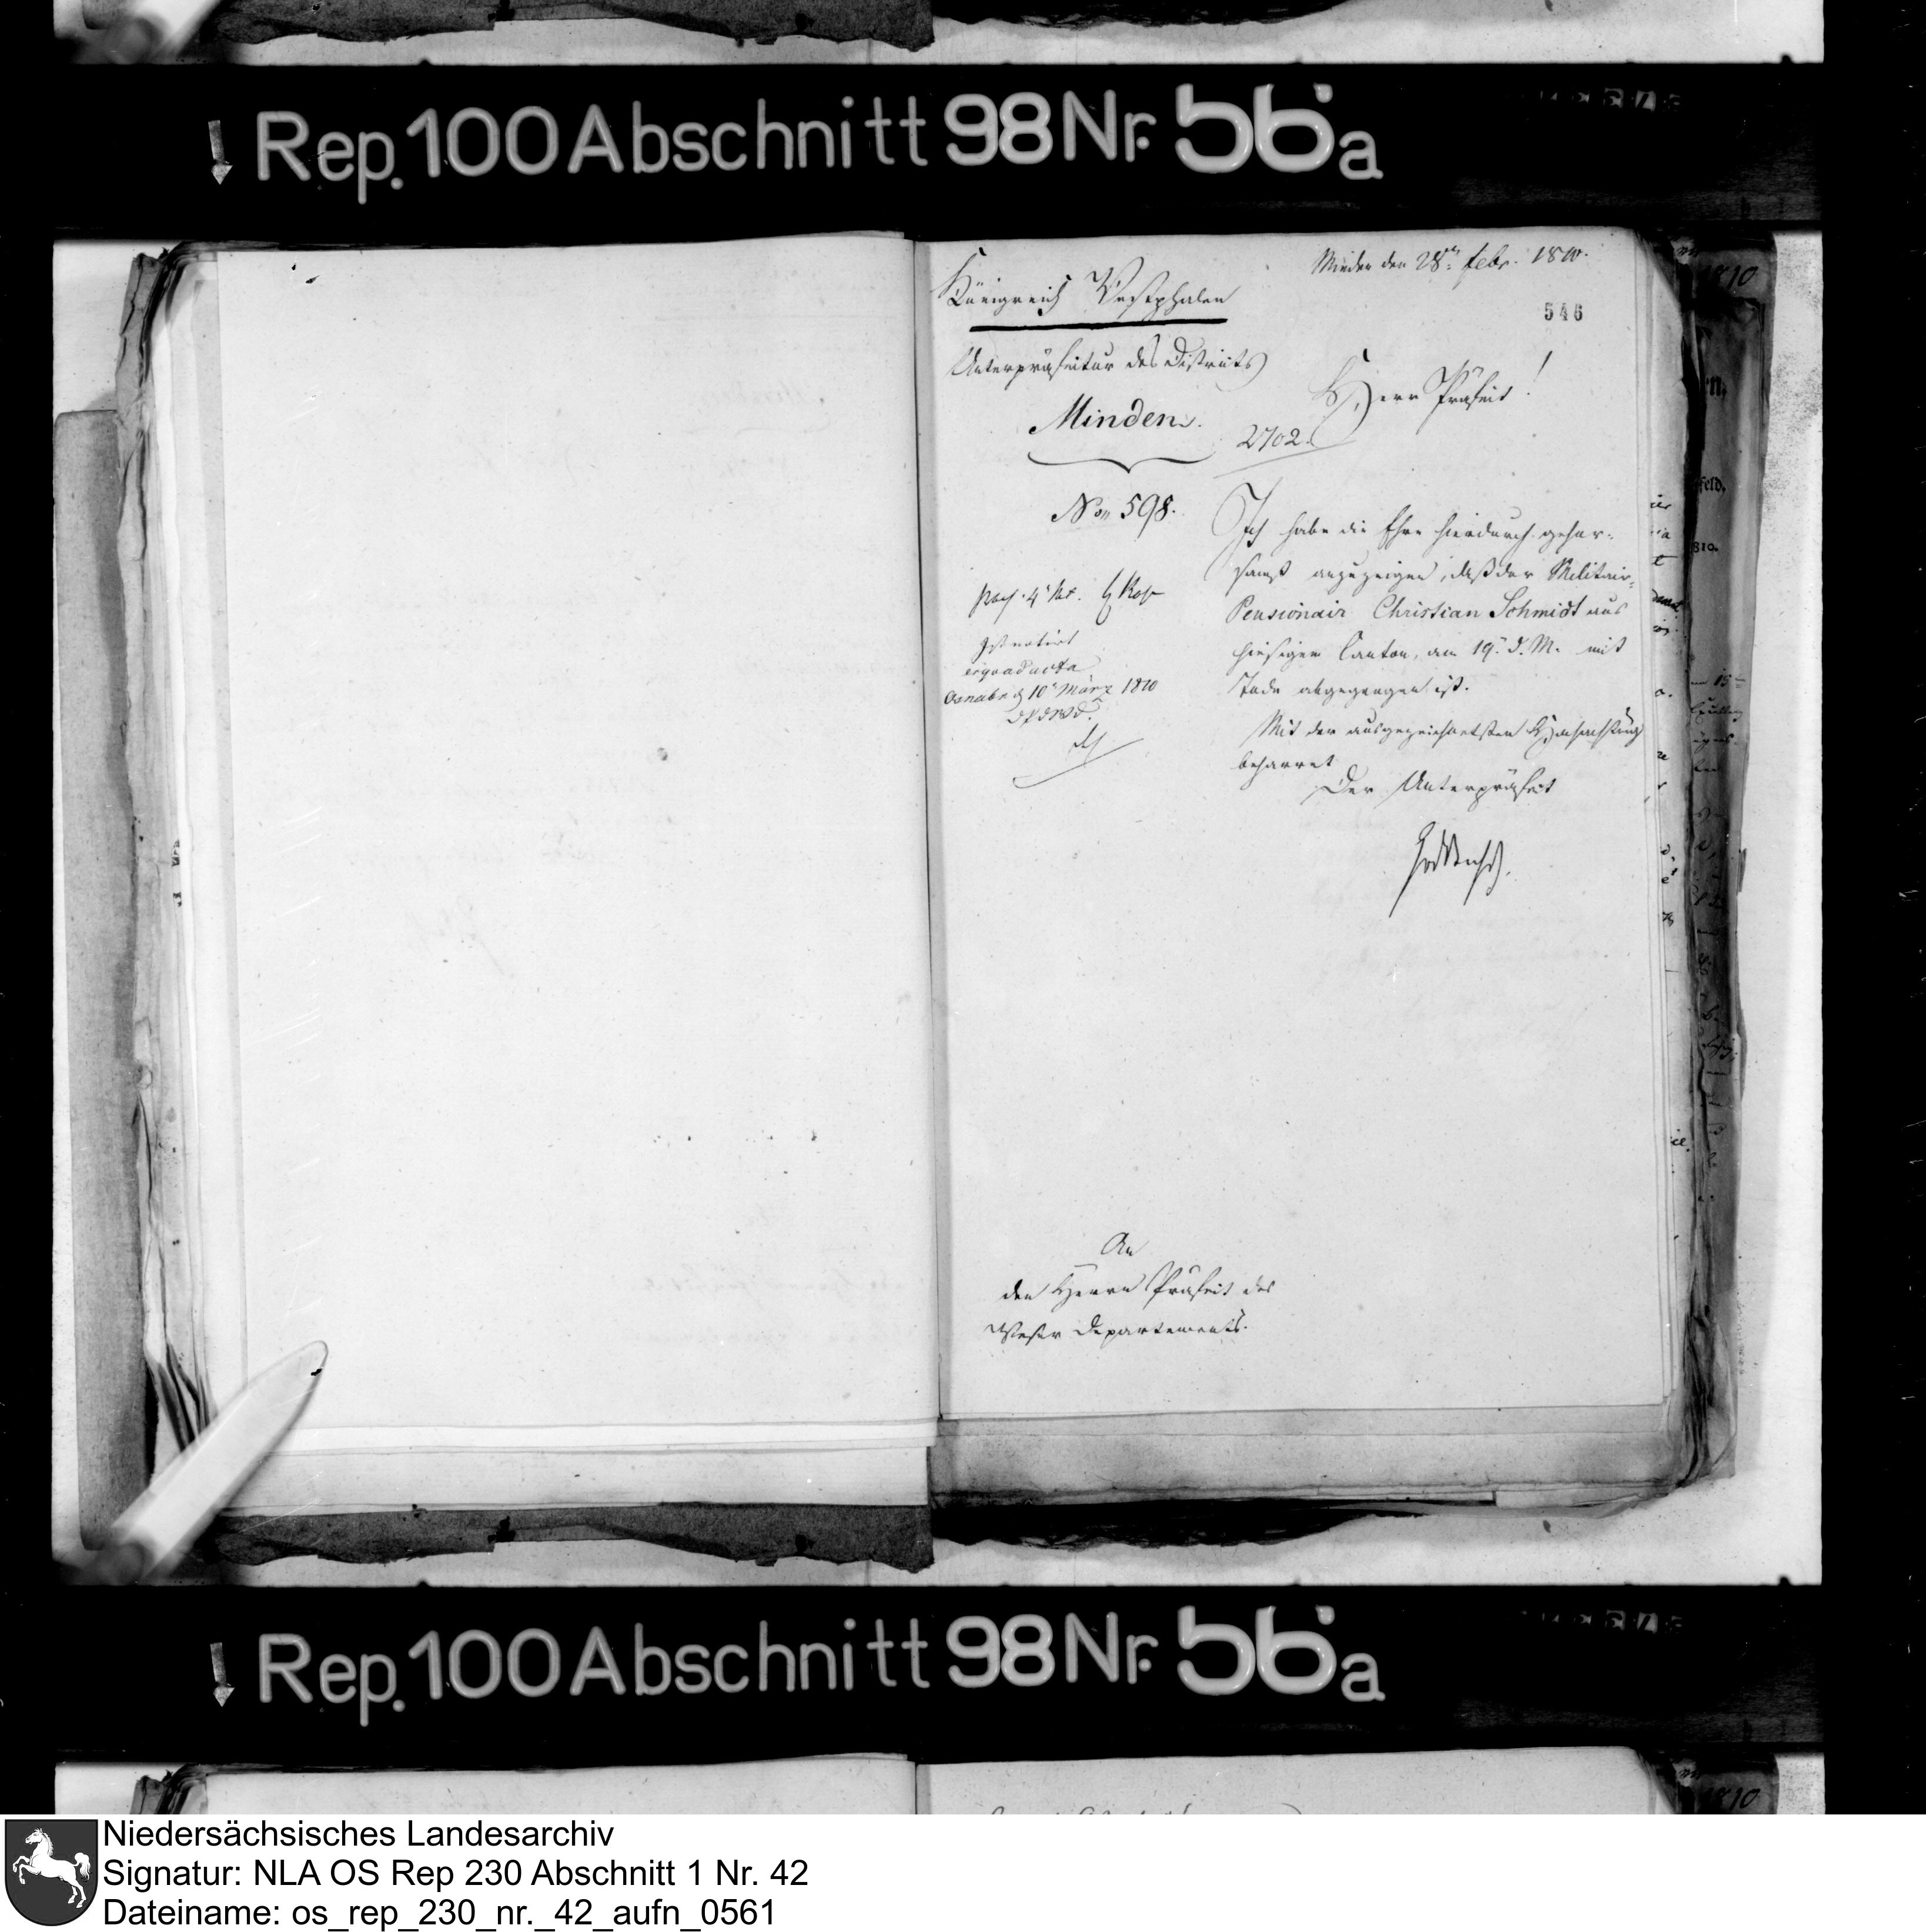 Rep. 100 Abschnitt 98 Nr. 56a
Königreich Westphalen
Minden den 28ten Febr. 1810.
546
Unterpräfectur des Districts
Minden.
Herr Präfect!
2702.
No 598.
Ich habe die Ehre hierdurch gehor-
samst anzuzeigen, daß der Militair-
Pensionair Christian Schmidt aus
hiesigem Canton, am 19. d. M. mit
Tode abgegangen ist.
Mit der ausgezeichnetsten Hochachtung
beharret
Der Unterpräfect
Ist notirt
ergo ad acta
Osnabr. d 10 März 1810
An
den Herrn Präfect des
Weser Departements.
Rep. 100 Abschnitt 98 Nr. 56a
Niedersächsisches Landesarchiv
Signatur: NLA OS Rep 230 Abschnitt 1 Nr. 42
Dateiname: os_rep_230_nr._42_aufn_0561